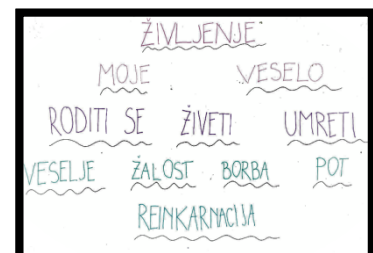 ŽIVLJENJE
MOJE VESELO
RODITI SE ŽIVETI UMRETI
VESELJE ŽALOST BORBA POT
REINKARNACIJA